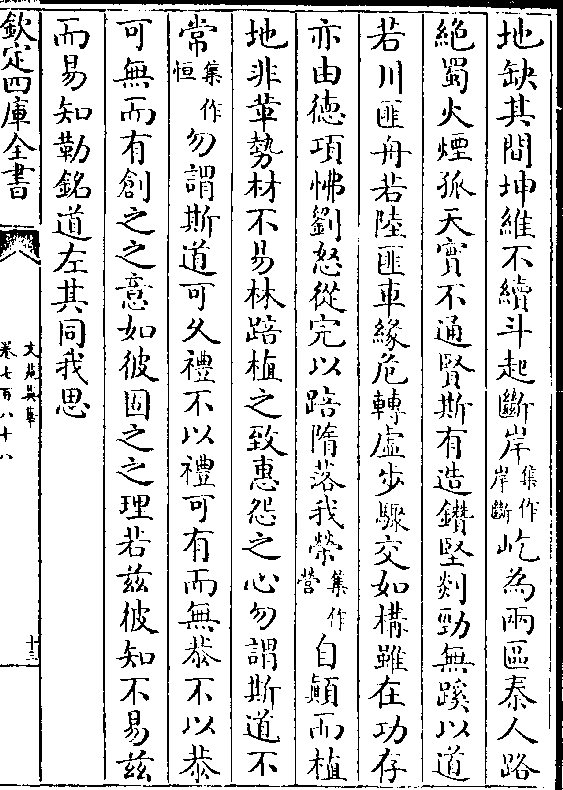 地缺其間坤維不續斗起斷岸集作岸斷屹為兩區秦人路
絶蜀火煙孤天實不通賢斯有造鑽堅剡勁無蹊以道
若川匪舟若陸匪車緣危轉虛步驟交如構雖在功存
亦由徳項怫劉怒從完以踣隋落我榮集作營自顛而植
地非革勢材不易林踣植之致惠怨之心勿謂斯道不
常集作恒勿謂斯道可久禮不以禮可有而無恭不以恭
可無而有創之之意如彼固之之理若兹彼知不易兹
而易知勒銘道左其同我思
欽定四庫全書
文苑英華
卷七百八十八
十三